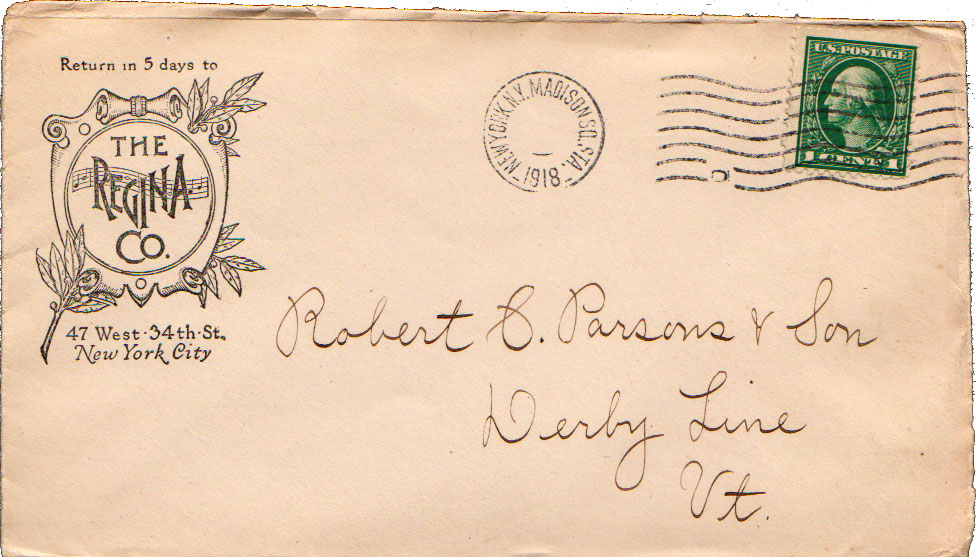 Return in 5 days to
THE
REGINA
CO.
47 West·34th·St.
New York City
NEW YORK, N.Y. MADISON SQ. STA.
1918
U.S. POSTAGE
1 CENT 1
Robert C. Parsons & Son
Derby Line
Vt.